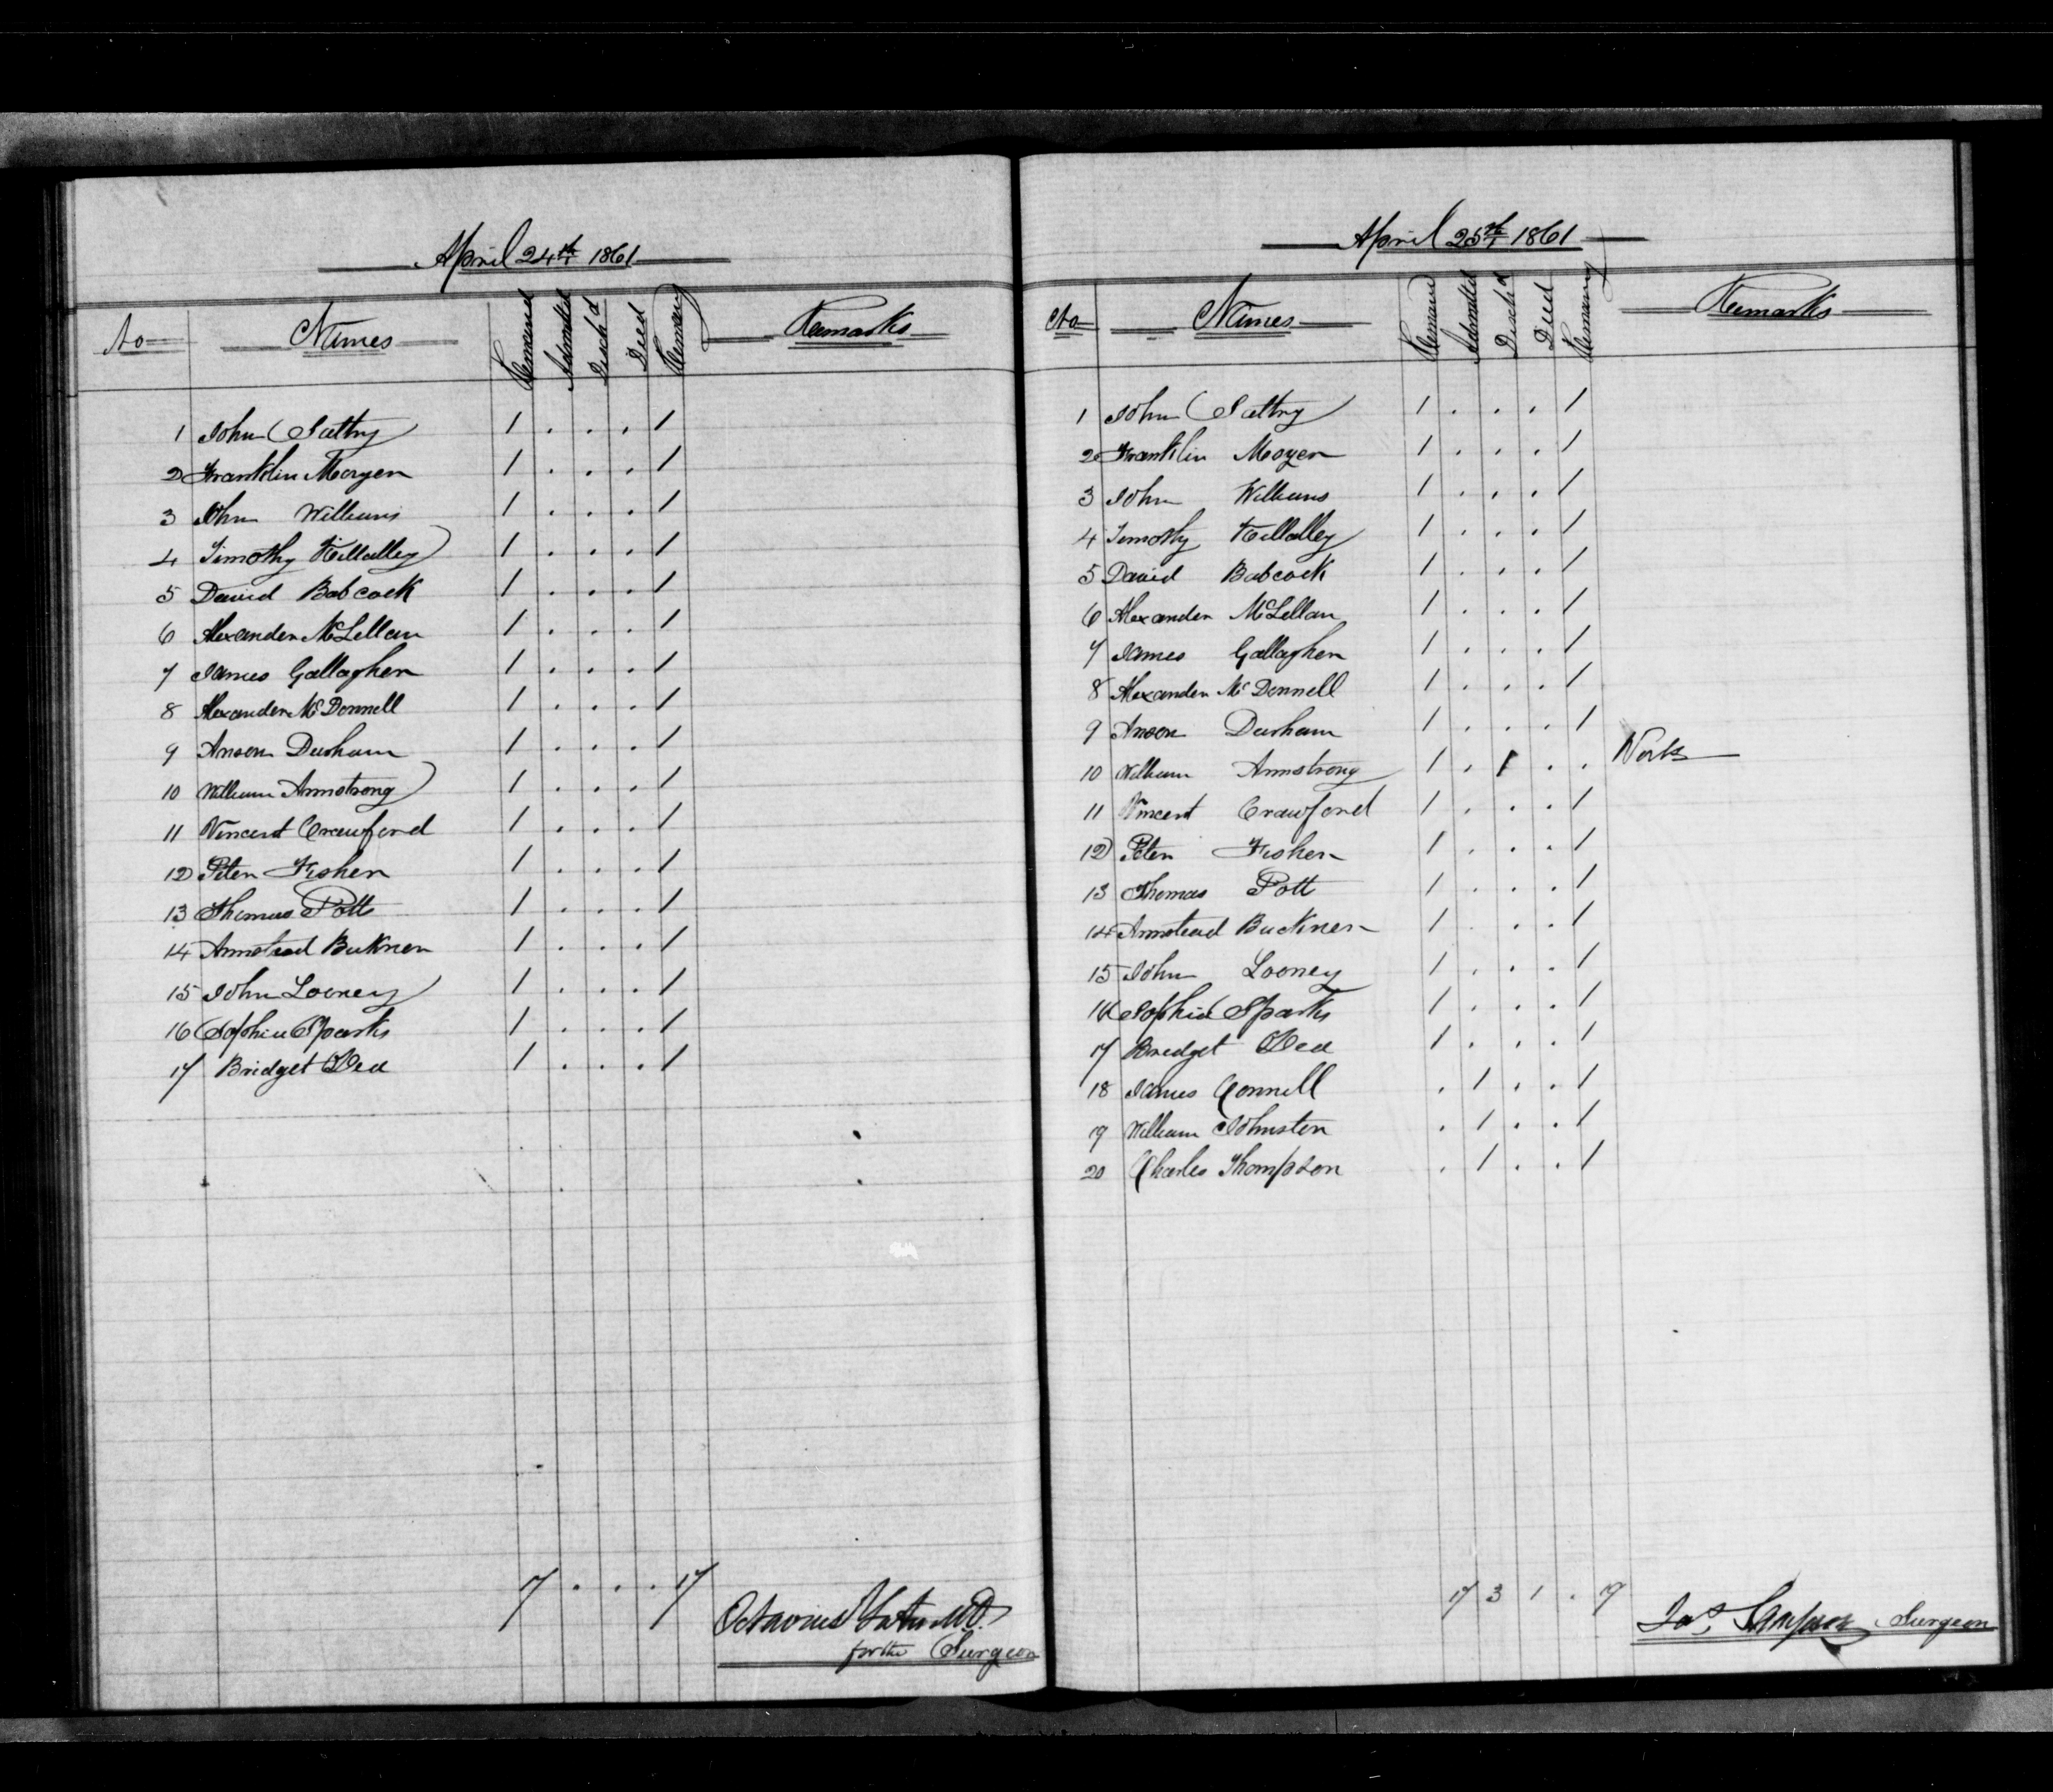 April 24th 1861
No Names Remained Admitted Disch'd Died Remaing Remarks
1 John Sattry 1 . . . 1
2 Franklin Moyer 1 . . . 1
3 John Williams 1 . . . 1
4 Timothy Killalley 1 . . . 1
5 David Babcock 1 . . . 1
6 Alexander McLellan 1 . . . 1
7 James Gallagher 1 . . . 1
8 Alexander McDonnell 1 . . . 1
9 Anson Durham 1 . . . 1
10 William Armstrong 1 . . . 1
11 Vincent Crawford 1 . . . 1
12 Peter Fisher 1 . . . 1
13 Thomas Pott 1 . . . 1
14 Armstead Bukner 1 . . . 1
15 John Looney 1 . . . 1
16 Sophia Sparks 1 . . . 1
17 Bridget Dea 1 . . . 1
17 . . . 17
Octavius M.D.
for the Surgeon
April 25th 1861
No Names Remained Admitted Disch'd Died Remaing Remarks
1 John Sattry 1 . . . 1
2 Franklin Moyer 1 . . . 1
3 John Williams 1 . . . 1
4 Timothy Killalley 1 . . . 1
5 David Babcock 1 . . . 1
6 Alexander McLellan 1 . . . 1
7 James Gallagher 1 . . . 1
8 Alexander McDonnell 1 . . . 1
9 Anson Durham 1 . . . 1
10 William Armstrong 1 . 1 . . Work
11 Vincent Crawford 1 . . . 1
12 Peter Fisher 1 . . . 1
13 Thomas Pott 1 . . . 1
14 Armstead Buckner 1 . . . 1
15 John Looney 1 . . . 1
16 Sophia Sparks 1 . . . 1
17 Bridget Dea 1 . . . 1
18 James Connell . 1 . . 1
19 William Johnston . 1 . . 1
20 Charles Thompson . 1 . . 1
17 3 1 . 19
Jas. Sampson Surgeon